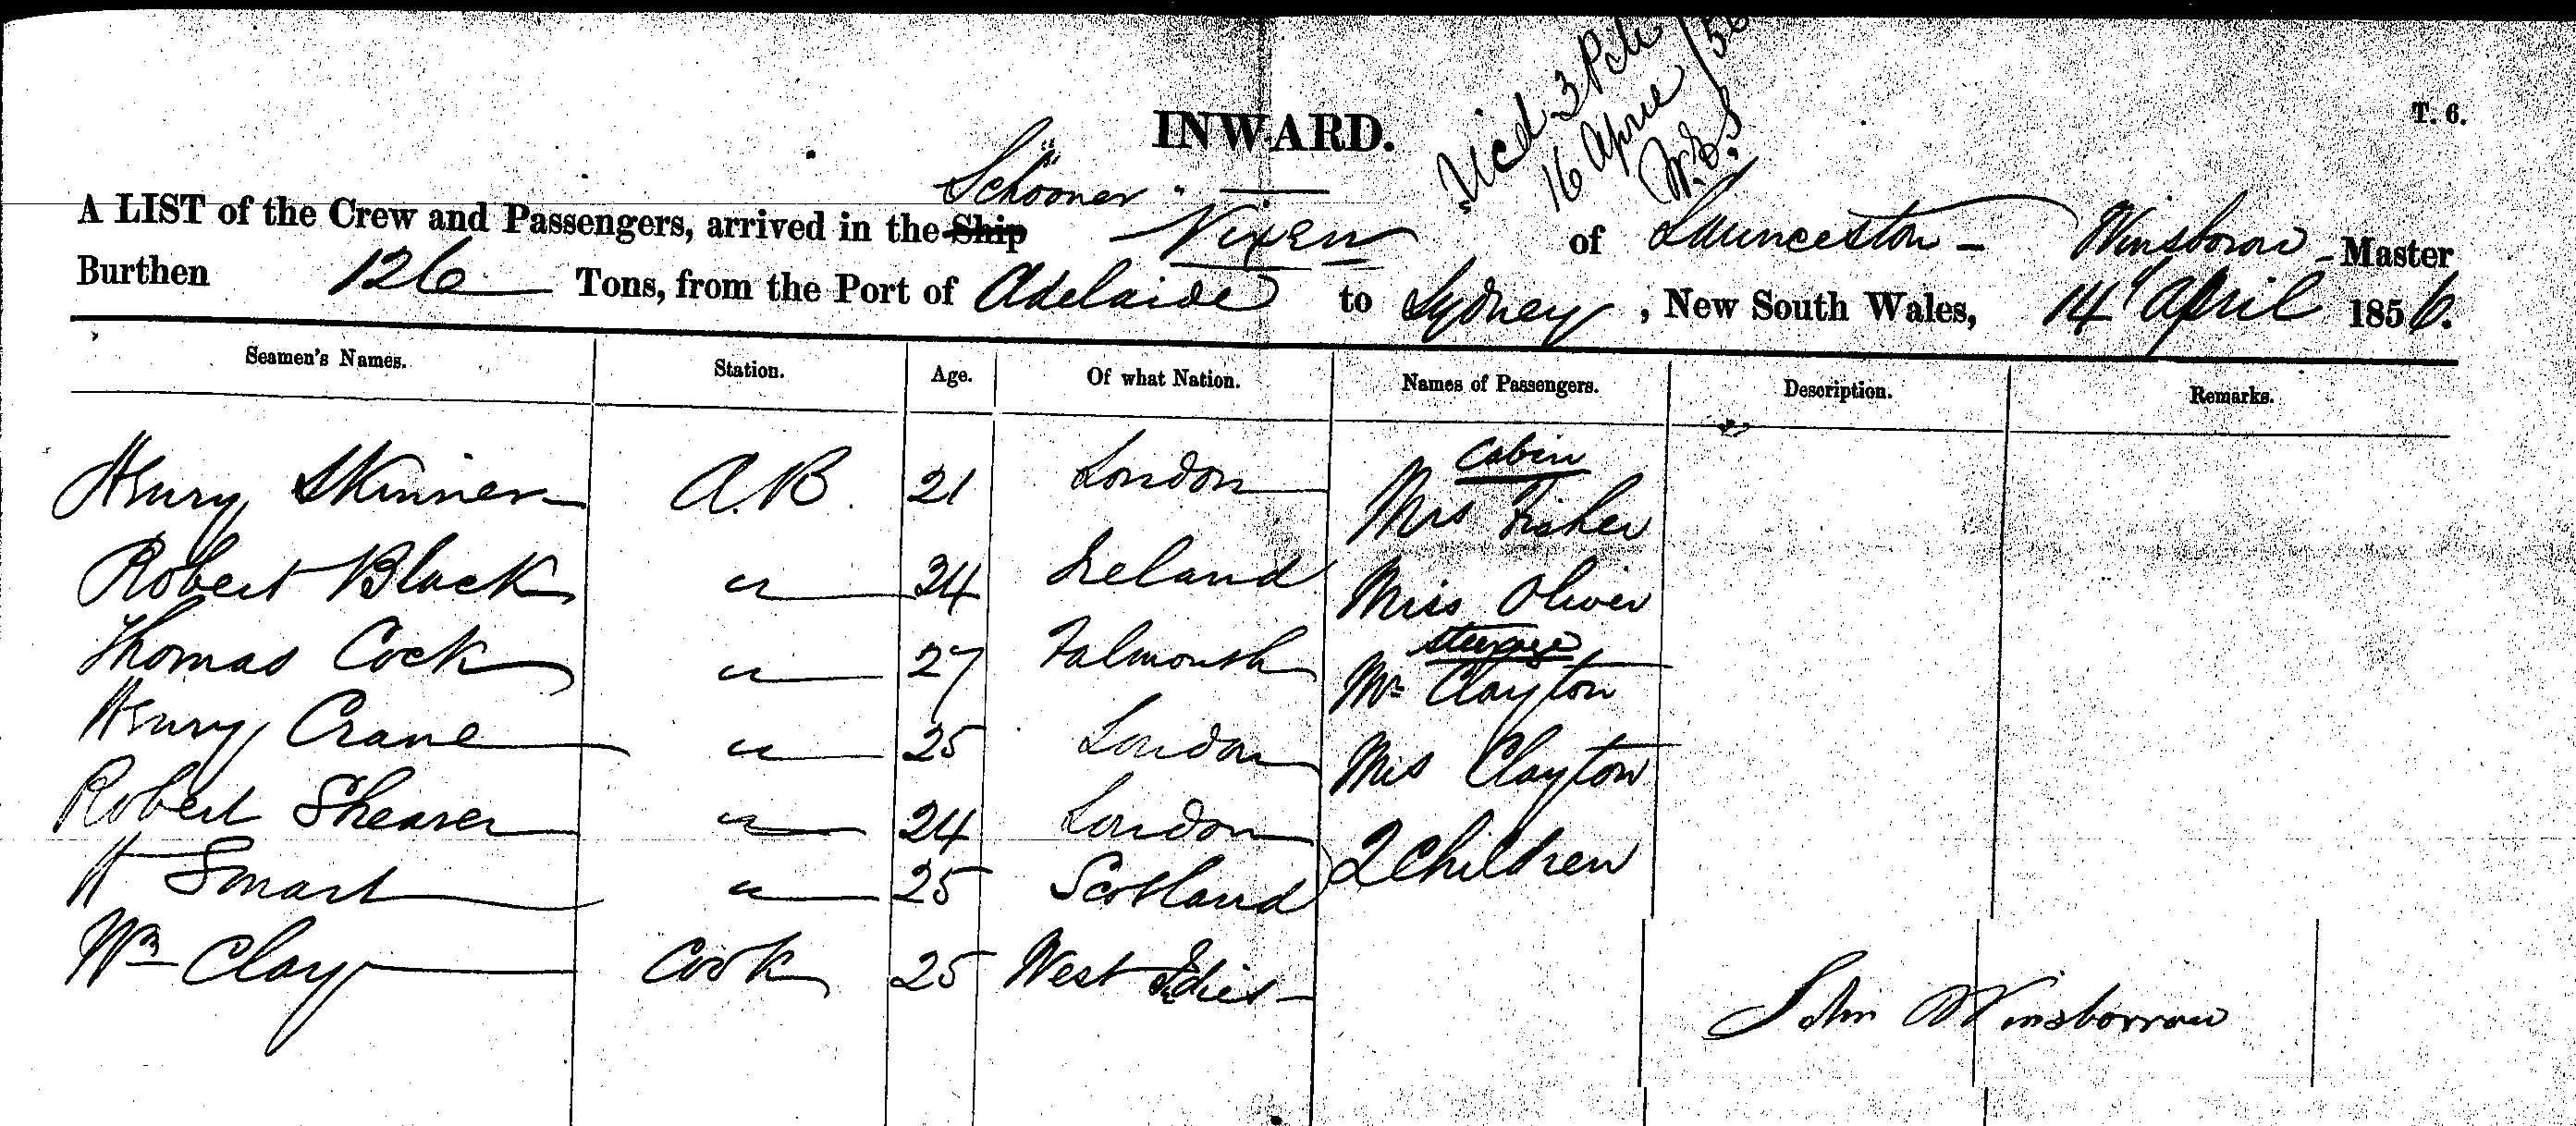 INWARD.
T. 6.
16 April /56
A LIST of the Crew and Passengers, arrived in the Ship Schooner "Vixen of Launceston - Winsborow - Master
Burthen 126 Tons, from the Port of Adelaide to Sydney, New South Wales, 14 April 1856.
Seamen's Names. Station. Age. Of what Nation. Names of Passengers. Description. Remarks.
Cabin
Henry Skinner A.B. 21 London Mrs Fisher
Robert Black " 24 Ireland Miss Oliver
steerage
Thomas Cock " 27 Falmouth Mr Clayton
Henry Crane " 25 London Mrs Clayton
Robert Shearer " 24 London 2 Children
H Smart " 25 Scotland
Wm Clay Cook 25 West Indies
John Winsborrow